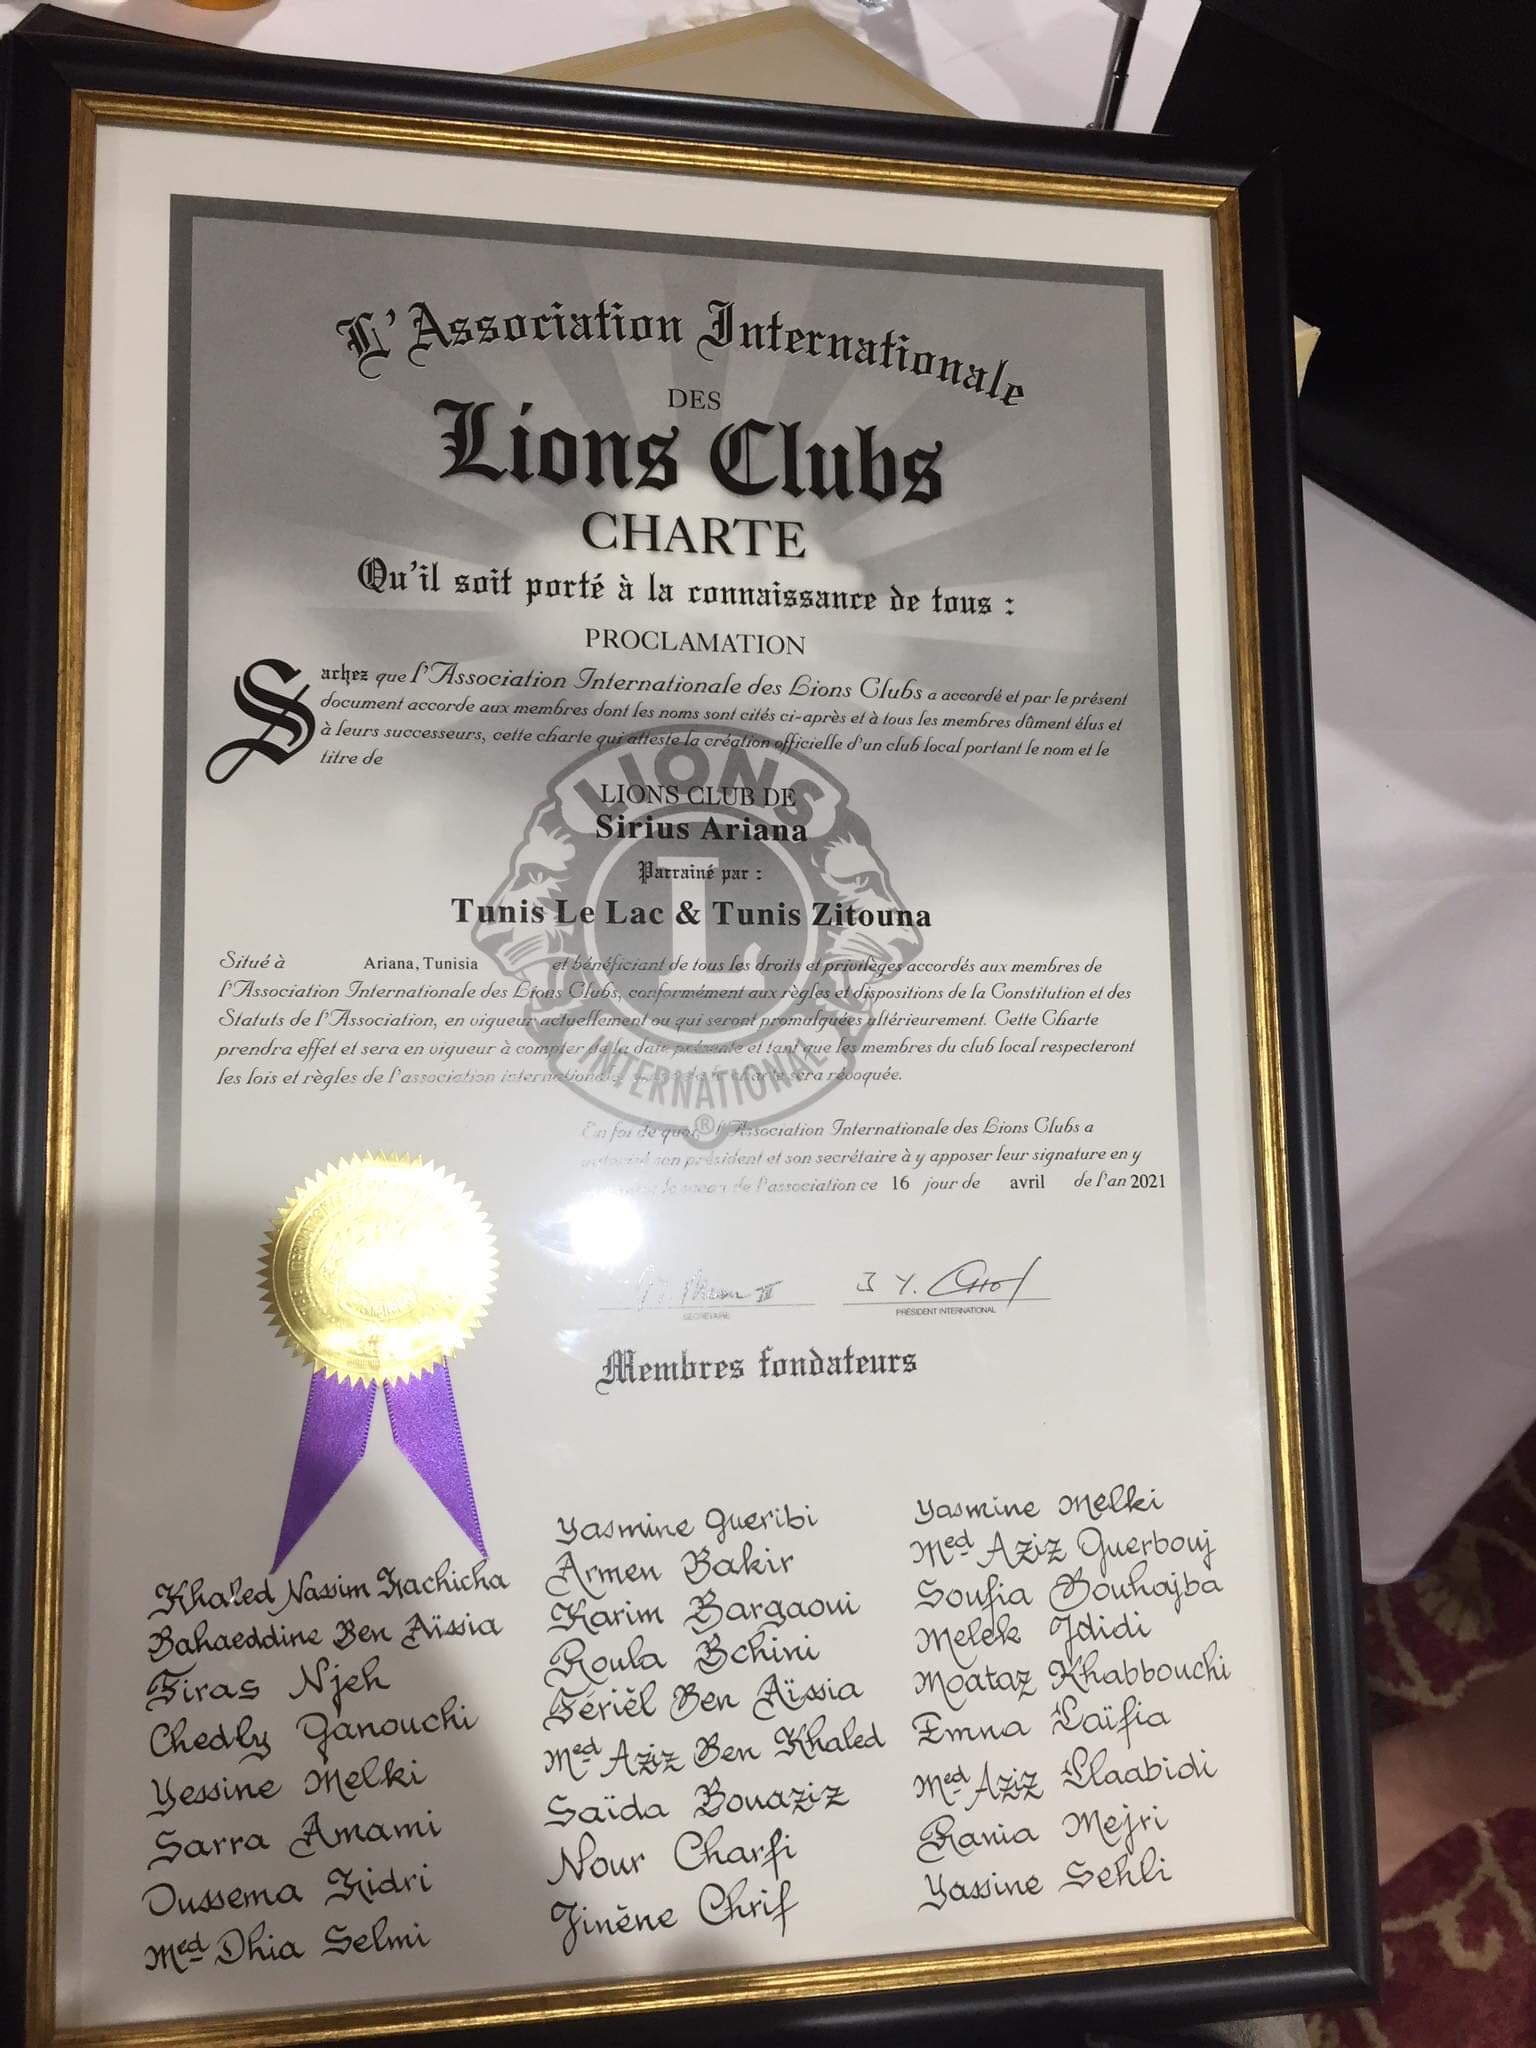 L'Association Internationale
DES
Lions Clubs
CHARTE
Qu'il soit porté à la connaissance de tous :
PROCLAMATION
Sachez que l'Association Internationale des Lions Clubs a accordé et par le présent
document accorde aux membres dont les noms sont cités ci-après et à tous les membres dûment élus et
à leurs successeurs, cette charte qui atteste la création officielle d'un club local portant le nom et le
titre de
LIONS CLUB DE
Sirius Ariana
Parrainé par :
Tunis Le Lac & Tunis Zitouna
Situé à Ariana, Tunisia et bénéficiant de tous les droits et privilèges accordés aux membres de
l'Association Internationale des Lions Clubs, conformément aux règles et dispositions de la Constitution et des
Statuts de l'Association, en vigueur actuellement ou qui seront promulguées ultérieurement. Cette Charte
prendra effet et sera en vigueur à compter de la date présente et tant que les membres du club local respecteront
les lois et règles de l'association internationale, charte sera révoquée.
LIONS
L
INTERNATIONAL
®
En foi de quoi, l'Association Internationale des Lions Clubs a
autorisé son président et son secrétaire à y apposer leur signature en y
le sceau de l'association ce 16 jour de avril de l'an 2021
SECRÉTAIRE
PRÉSIDENT INTERNATIONAL
Membres fondateurs
Khaled Nassim Kachicha
Bahaeddine Ben Aïssia
Firas Njeh
Chedly Ganouchi
Yessine Melki
Sarra Amami
Oussema Kidri
Med Dhia Selmi
Yasmine Gueribi
Armen Bakir
Karim Bargaoui
Roula Bchini
Fériël Ben Aïssia
Med Aziz Ben Khaled
Saïda Bouaziz
Nour Charfi
Jinène Chrif
Yasmine Melki
Med Aziz Guerbouj
Soufia Bouhajba
Melek Jdidi
Moataz Khabbouchi
Emna Laïfia
Med Aziz Llaabidi
Rania Mejri
Yassine Sehli